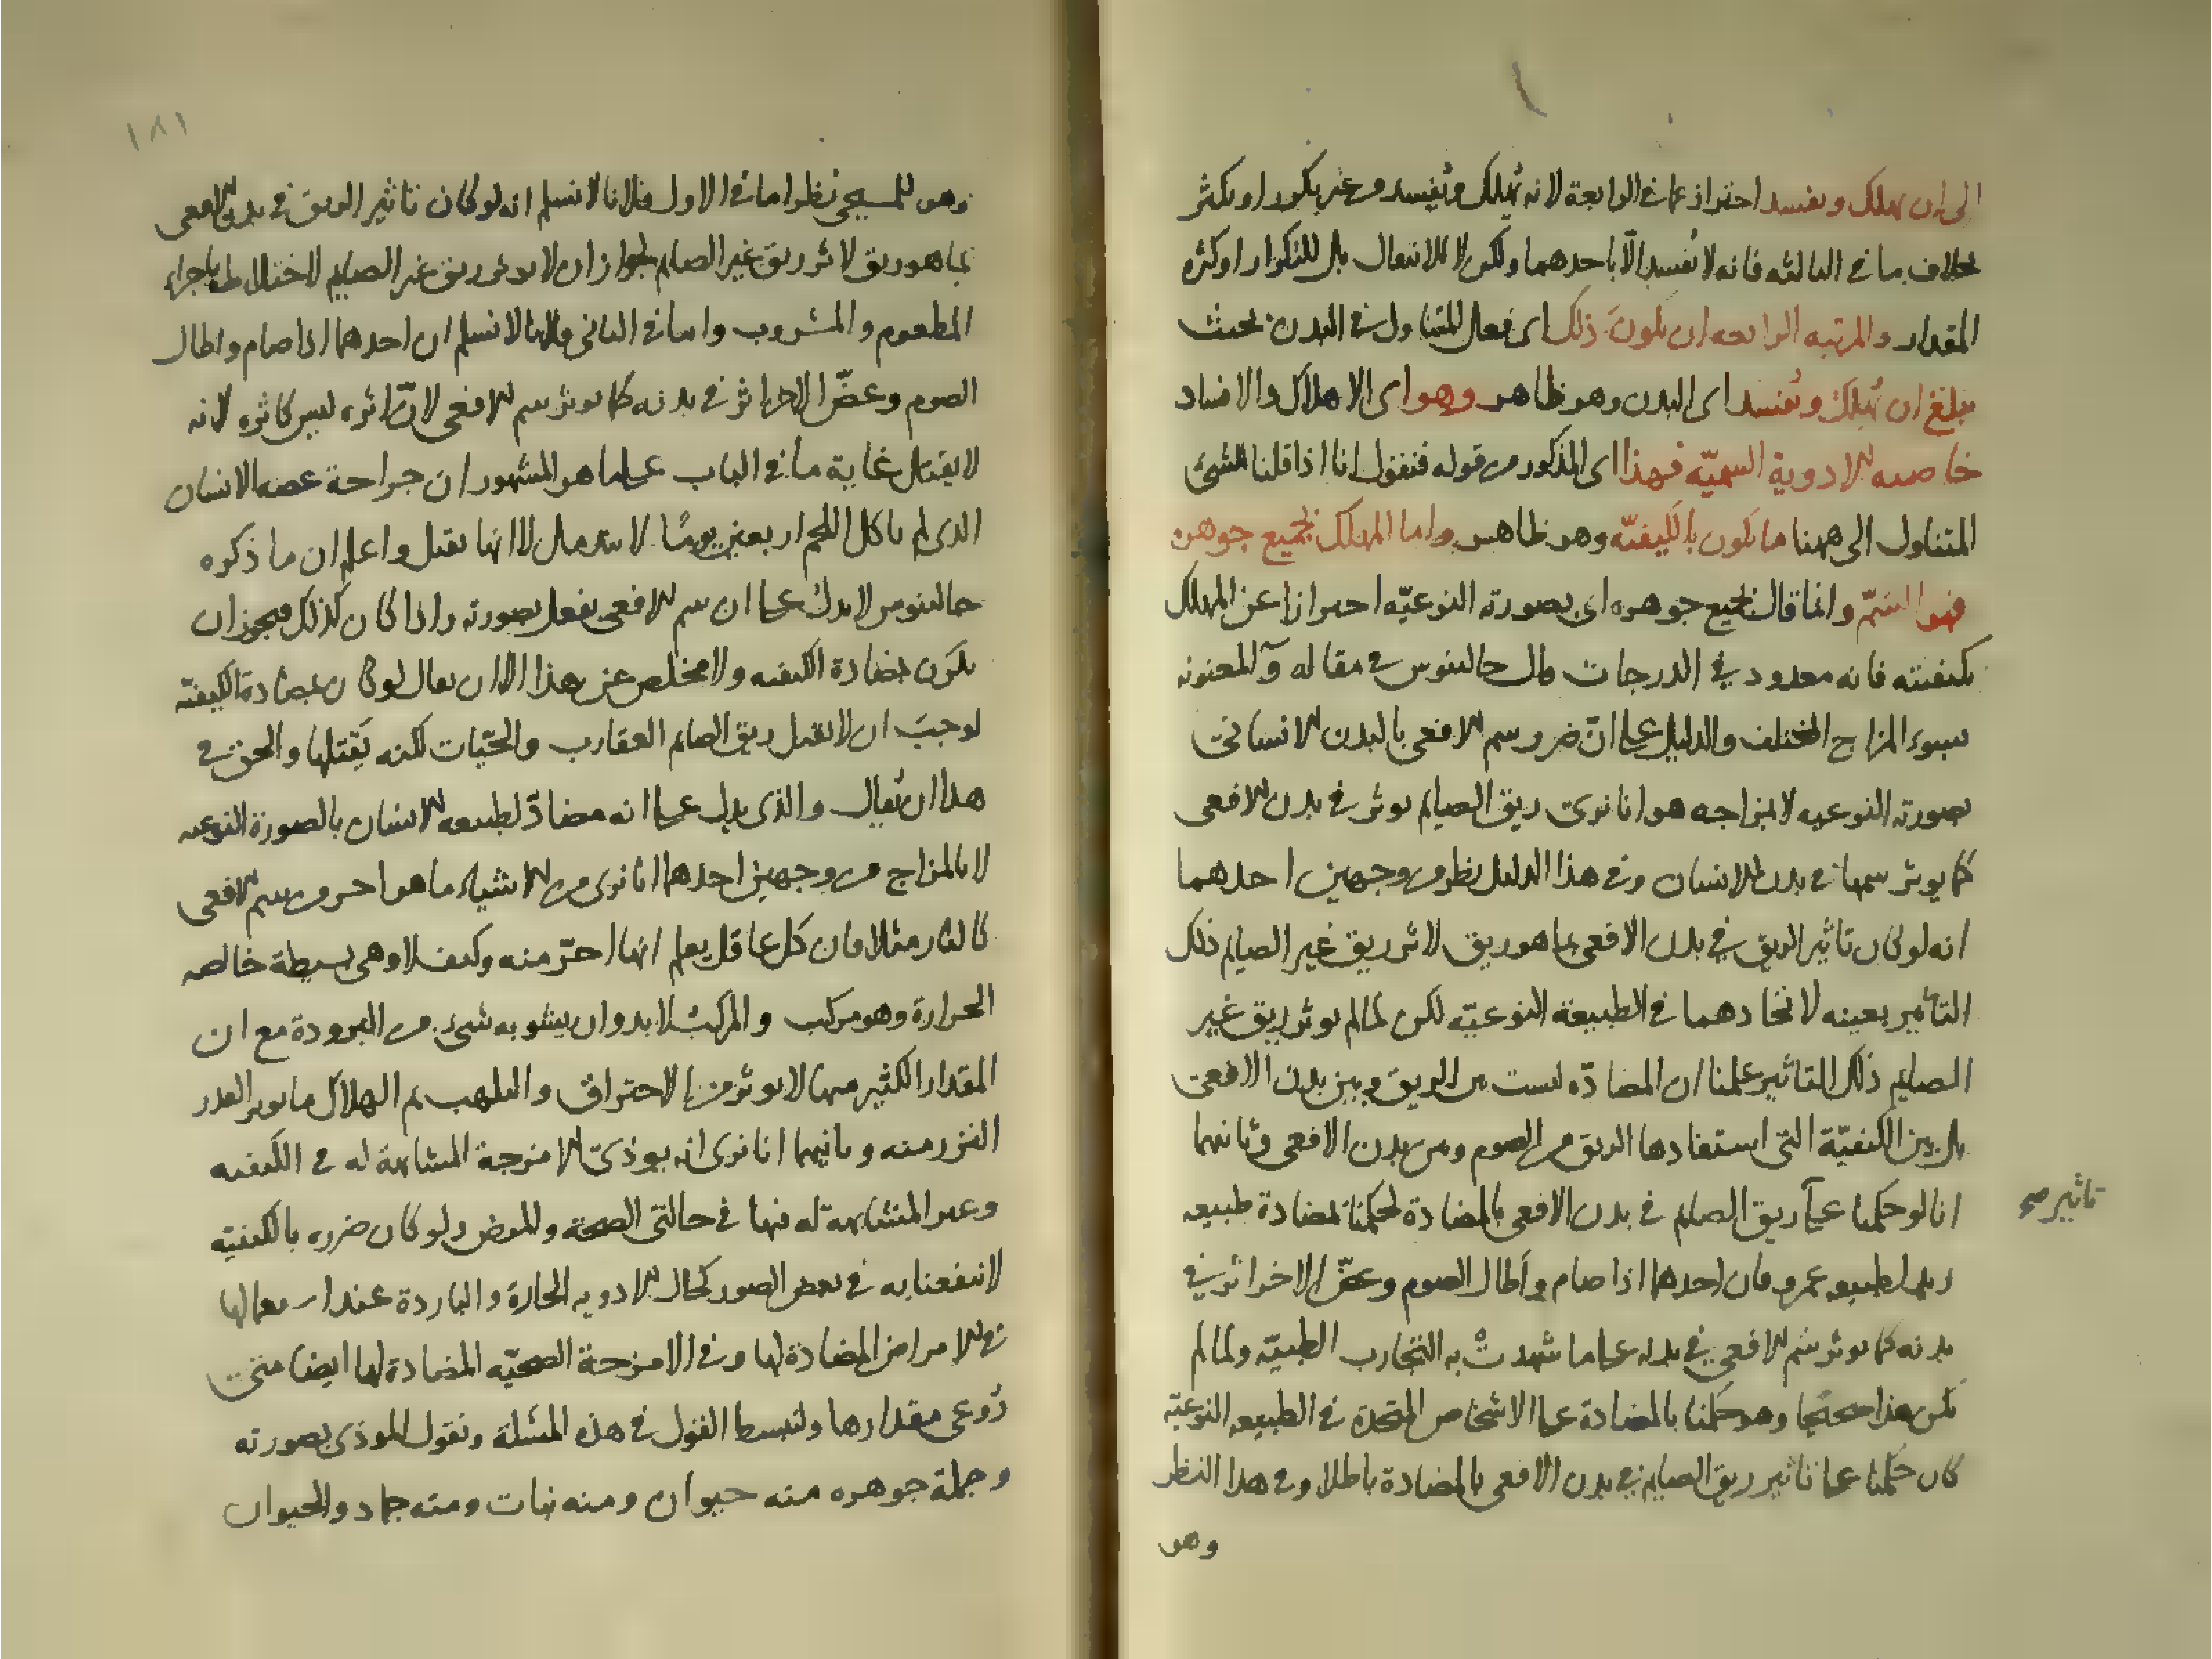 الى ان يهلك ويفسد احترازعما فى الرابعة لانه يُهلك ويُفسد من غير يكرر او يكثر
بخلاف ما فى الثالثه فانه لا يُفسد الّا باحدهما ولكن لا للانفعال بل للتكرار او كثره
المقدار والمرتبه الرابعه ان يكونَ ذلك اى فعل المتناول فى البدن بحيث
يبلغ ان يُهلك ويُفسد اى البدن وهو ظاهر وهو اى الاهلاك والافساد
خاصه الادوية السميّه فهذا اى المذكور من قوله فنقول انا اذا قلنا للشئ
المتناول الى ههنا ما يكون بالكيفيّه وهو ظاهر واما المهلك بجميع جوهره
فهو السّمّ وانما قال بجميع جوهره اى بصورته النوعيّه احترازا عن المهلك
بكيفيته فانه معدود فى الدرجات قال جالينوس فى مقالته المعنونه
بسوء المزاج المختلف والدليل على انّ ضرر سم الافعى بالبدن الانسانى
بصورته النوعيه لا بمزاجه هو انا نرى ريق الصايم يوثر فى بدن الافعى
كما يوثر سمها فى بدن الانسان وفى هذا الدليل نظر من وجهين احدهما
انه لو كان تاثير الريق فى بدن الافعى بما هو ريق لاثر ريق غير الصايم ذلك
التاثير بعينه لاتحادهما فى الطبيعة النوعيّه لكن لما لم يوثر ريق غير
الصايم ذلك التاثير علمنا ان المضادّه ليست بين الريق وبين بدن الافعى
بل بين الكيفيّة التى استفادها الريق من الصوم وبين بدن الافعى وثانيهما
انا لو حكمنا على ريق الصايم فى بدن الافعى بالمضادة لحكمنا بمضادة طبيعه
تاثير صح
زيد لطبيعه عمرو فان احدهما اذا صام واطال الصوم وعضّ الاخر اثر فى
بدنه كما يوثر سم الافعى فى بدنه على ما شهدتْ به التجارب الطبيّه ولما لم
يكن هذا صحيحا وهو حكمنا بالمضادة على الاشخاص المتحدة فى الطبيعه النوعيّه
كان حكمنا على تاثير ريق الصايم فى بدن الافعى بالمضادة باطلا وفى هذا النظر
وهو
١٨١
وهو للمسيحى نظر اما فى الاول فلانا لا نسلم انه لو كان تاثير الريق فى بدن الافعى
بما هو ريق لاثر ريق غير الصايم لجواز ان لا يوثر ريق غير الصايم لاختلاطه باجزاء
المطعوم والمشروب واما فى الثانى فلانا لا نسلم ان احدهما اذا صام واطال
الصوم وعضّ الاخر اثر فى بدنه كما يوثر سم الافعى لانّ اثره ليس كاثره لانه
لا يقتل غاية ما فى الباب على ما هو المشهور ان جراحة عضه الانسان
الذى لم ياكل اللحم اربعين يومًا لا يندمل لا انها تقتل واعلم ان ما ذكره
جالينوس لا يدل على ان سم الافعى يفعل بصورته واذا كان كذلك فيجوز ان
يكون بمضادة الكيفيه ولا مخلص عن هذا الا ان يقال لو كان بمضادة الكيفيّه
لوجبَ ان لا يقتل ريق الصايم العقارب والحيّات لكنه يَقتلها والحق فى
هذا ان يُقال والذى يدل على انه مضادّ لطبيعه الانسان بالصورة النوعيه
لا بالمزاج من وجهين احدهما انا نرى من الاشياء ما هو احر من سم الافعى
كالنار مثلا فان كل عاقل يعلم انها احرّ منه وكيف لا وهى بسيطة خالصه
الحرارة وهو مركب والمركبُ لا بد وان يشوبه شئ من البرودة مع ان
المقدار الكثير منها لا يوثر من الاحتراق والتلهب ثم الهلاك ما يوثر القدر
النزر منه وثانيهما انا نرى انه يوذى الامزجة المشابهة له فى الكيفيه
وغير المشابهة له فيها فى حالتى الصحة والمرض ولو كان ضرره بالكيفيّه
لانتفعنا به فى بعض الصور كحال الادويه الحارة والباردة عند استعمالها
فى الامراض المضادة لها وفى الامزجة الصحيّه المضادة لها ايضا متى
رُوعى مقدارها ولنبسط القول فى هذه المسَلة ونقول الموذى بصورته
وجملة جوهره منه حيوان ومنه نبات ومنه جماد والحيوان